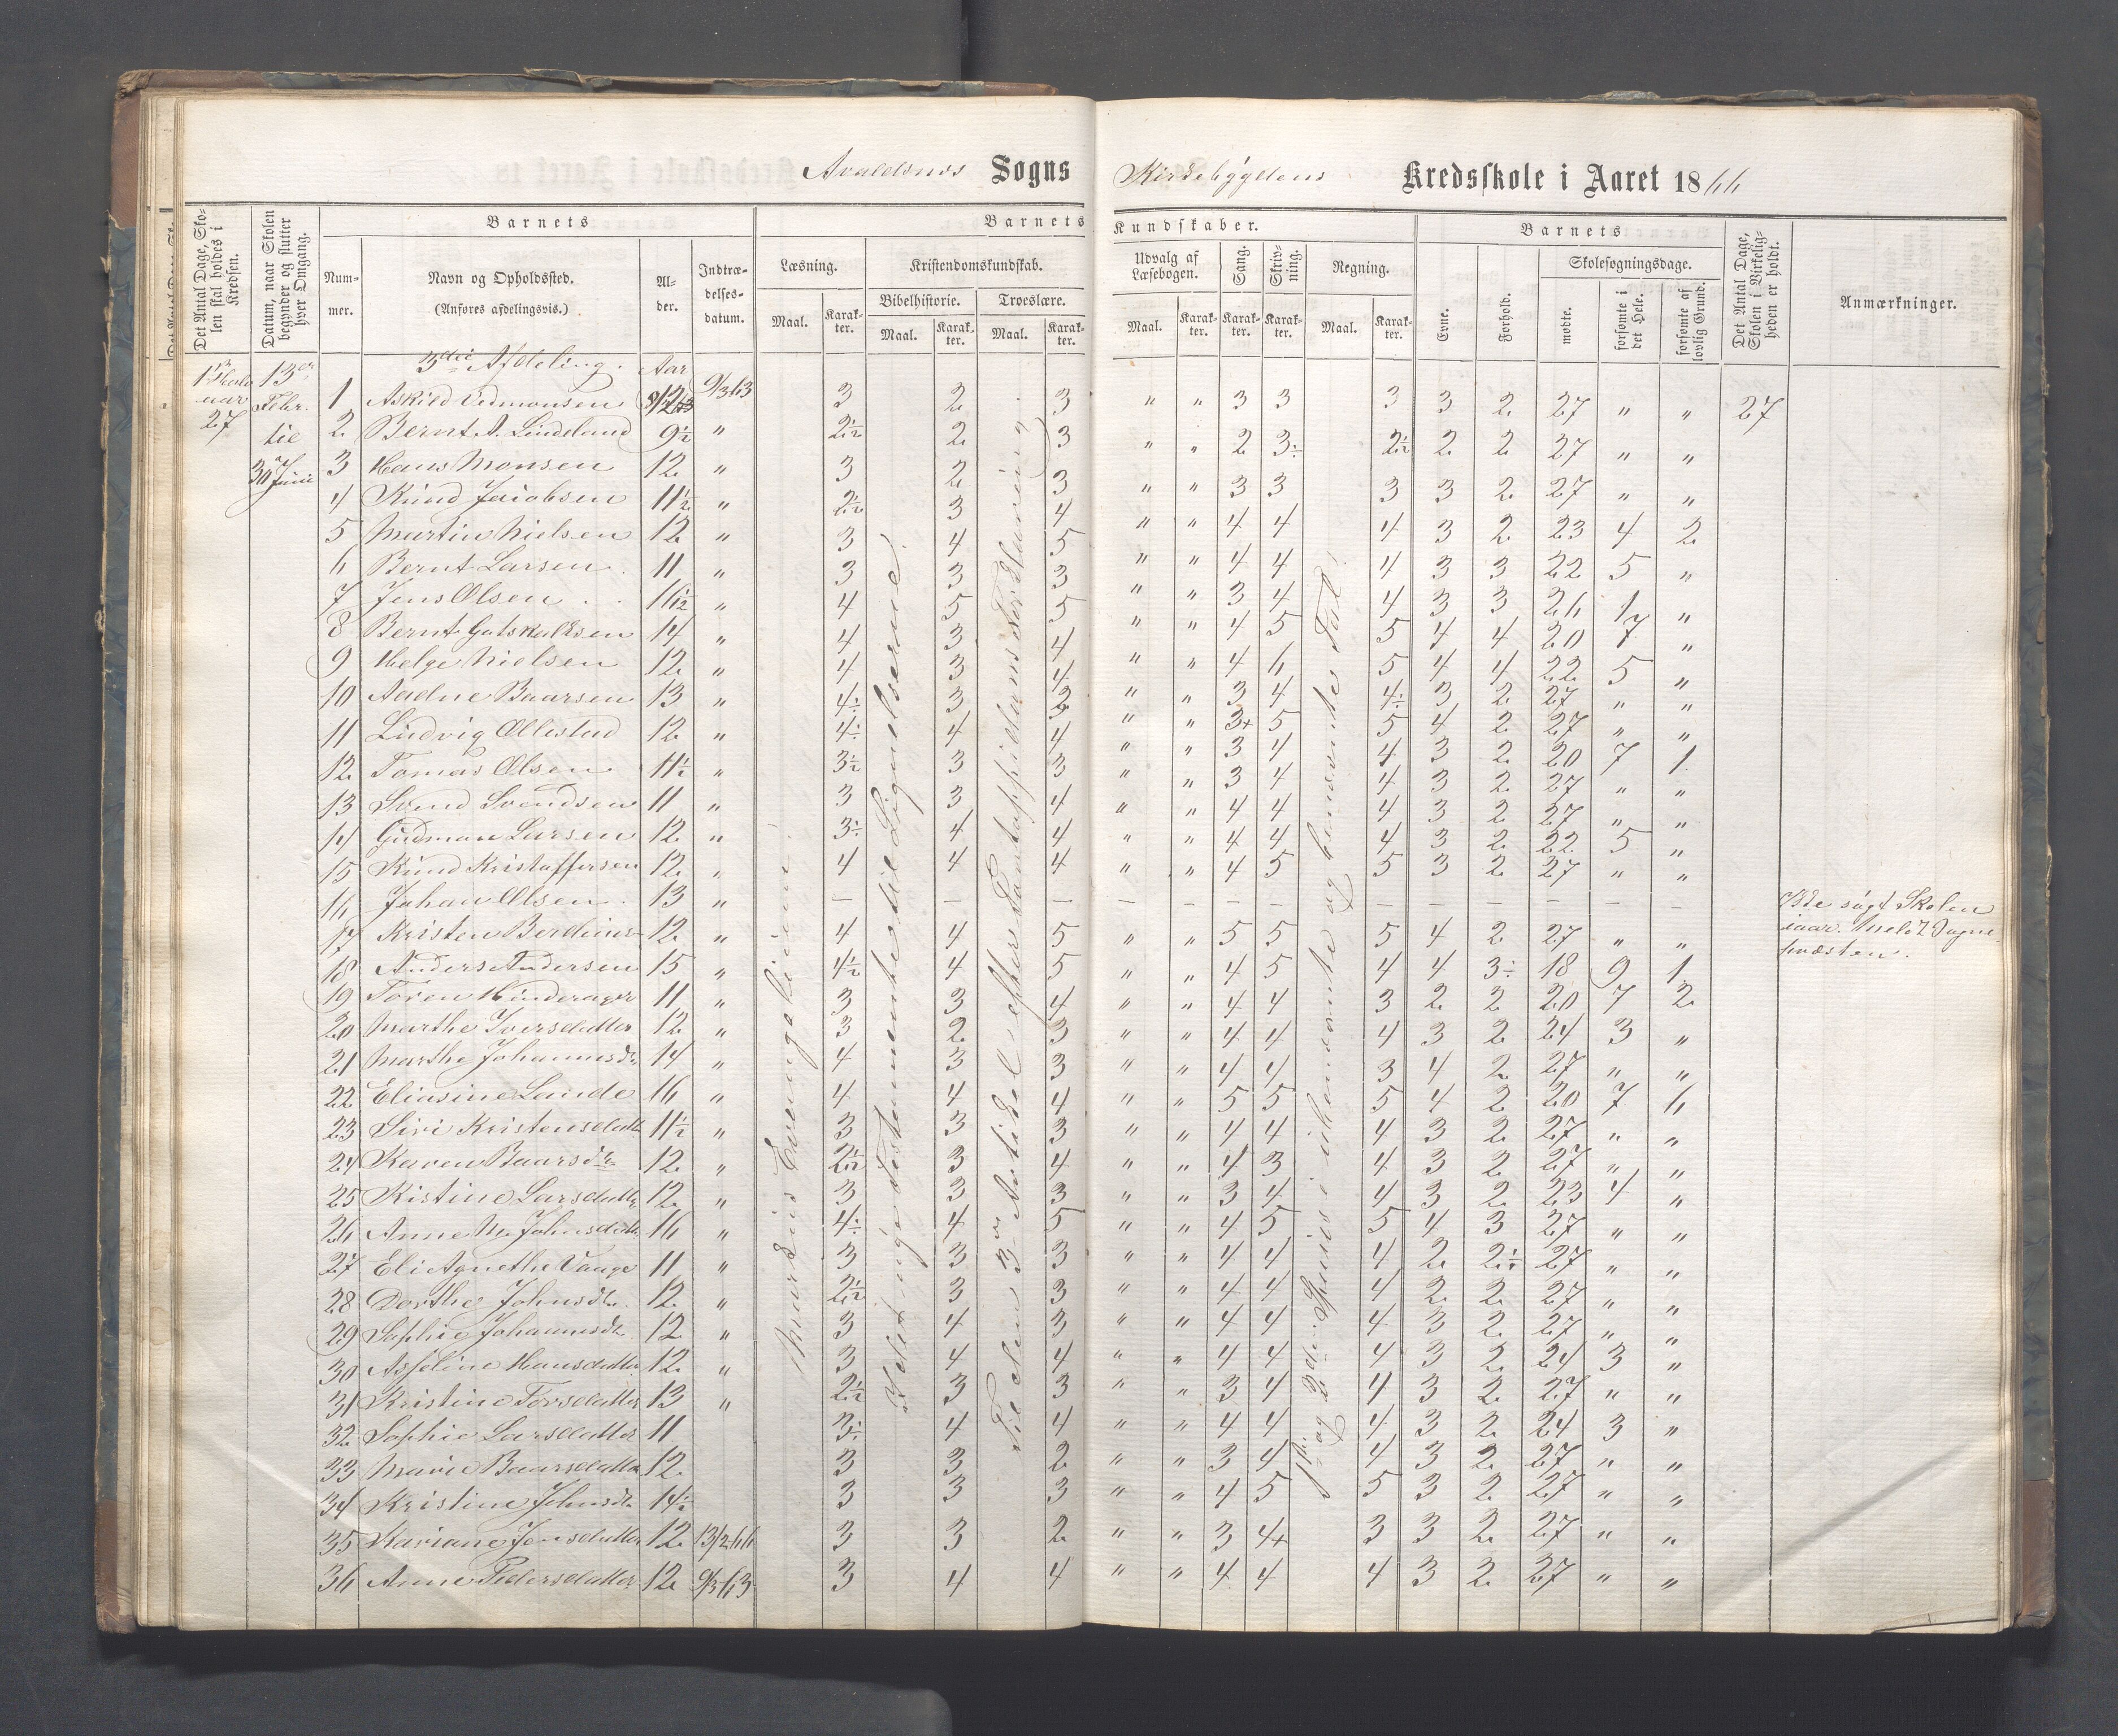 Avaldsnes Sogns Kirkebygdens Kredsskole i Aaret 1866
Det Antal Dage, Skolen skal holdes i Kredsen.
Datum, naar Skolen begynder og slutter hver Omgang.
Barnets
Nummer.
Navn og Opholdssted.
(Anføres afdelingsvis.)
Alder.
Indtrædelsesdatum.
Barnets Kundskaber.
Læsning.
Maal.
Karakter.
Kristendomskundskab.
Bibelhistorie.
Maal.
Karakter.
Troeslære.
Maal.
Karakter.
Udvalg af Læsebogen.
Maal.
Karakter.
Sang.
Karakter.
Skrivning.
Karakter.
Regning.
Maal.
Karakter.
Barnets
Evne.
Forhold.
Skolesøgningsdage.
mødte.
forsømte i det Hele.
forsømte af lovlig Grund.
Det Antal Dage, Skolen i Virkeligheden er holdt.
Anmærkninger.
3die Afdeling. Aar
27
13de Febr. til 30te Juni
1 Askild Vedmonsen 9/3 63 3 2 3 " " 3 3 3 3 2 27 " " 27
2 Bernt A. Lindeland 9½ " 2½ 2 3 " " 2 3÷ 2½ 2 2 27 " "
3 Hans Monsen 12 " 3 2 3 " " 3 3 3 3 2 27 " "
4 Knud Jacobsen 11½ " 2½ 3 4 " " 4 4 4 3 2 23 4 2
5 Martin Nielsen 12 " 3 4 5 " " 4 4 4 3 3 22 5 "
6 Bernt Larsen 11 " 3 3 3 " " 3 4 4 3 3 26 1 "
7 Jens Olsen " 4 5 5 " " 4 5 5 4 4 20 7 "
8 Bernt Gutskalksen 14 " 4 3 4 " " 4 6 5 4 4 22 5 "
9 Helge Nielsen 12 " 4 3 4 " " 3 4 4÷ 3 2 27 " "
10 Aadne Baarsen 13 " 4÷ 3 " " 3+ 5 5 4 2 27 " "
11 Ludvig Ollestad 12 " 4÷ 4 4 " " 3 4 4 3 2 20 7 1
12 Tomas Olsen 11½ " 3½ 3 3 " " 3 4 4 3 2 27 " "
13 Svend Svendsen 11 " 3 3 4 " " 4 4 4 3 2 27 " "
14 Gudmon Larsen 12 " 3÷ 4 4 " " 4 4 4 3 2 22 5 "
15 Knud Kristoffersen 12 " 4 4 4 " " 4 5 5 3 2 27 " "
16 Johan Olsen 13 " – – – – – – – – – – – Ikke søgt Skolen iaar. Meldt Sognepræsten.
17 Kristen Berdines 12 " 4 4 5 " " 5 5 5 4 2 27 " "
18 Anders Andersen 15 " 4½ 4 5 " " 4 5 4 4 3÷ 18 9 1
19 Toren Hinderager 11 " 3 3 4 " " 4 4 3 2 2 20 7 2
20 Marthe Iversdatter 12 " 3 2 3 " " 4 4 4 3 2 24 3 "
21 Marthe Johannesdt. 14 " 4 3 3 " " 4 4 3 4 2 27 " "
22 Eliasine Lande 16 " 4 4 4 " " 5 5 5 4 2 20 7 6
23 Siri Kristensdatter 11½ " 3 3 3 " " 4 4 4 3 2 27 " "
24 Karen Baarsdt. 12 " 2½ 3 4 " " 4 3 4 3 2 27 " "
25 Kistine Larsdatter 12 " 3 3 3 " " 3 4 4 3 2 23 4 "
26 Anne M. Johnsdatter 16 " 4÷ 4 5 " " 4 5 5 4 3 27 " "
27 Eli Agnethe Vange 11 " 3 3 3 " " 4 4 4 2 2½ 27 " "
28 Dorthe Johnsdt. 12 " 2½ 3 3 " " 4 4 4 2 2 27 " "
29 Sophie Johannesdt. 12 " 3 4 3 " " 4 4 4 3 2 27 " "
30 Asseline Hansdatter 12 " 3 4 4 " " 4 4 4 3 2 24 3 "
31 Kristine Torsdatter 13 " 2½ 3 3 " " 3 4 4 3 2 27 " "
32 Sophie Larsdatter 11 3÷ 4 4 " " 4 4 4 3 2 24 3 "
33 Marie Baarsdatter 12 3 3 2 " " 3 4 4 3 2 27 " "
34 Kristine Johnsdt. 14½ 3 3 3 " " 4 5 5 3 2 27 " "
35 Mariane Jensdatter 12 13/2 66 3 3 2 " " 3 4+ 3 3 2 27 " "
36 Anne Pedersdatter 12 9/3 63 3 4 4 " " 4 4 4 3 2 27 " "
Marki Evangelium!
Det nye Testamente til Lignelserne!
Til den 3die Artikel efter Pontoppidans Forklaring
1ste og 2den Species i ubenævnte og benævnte Tal!